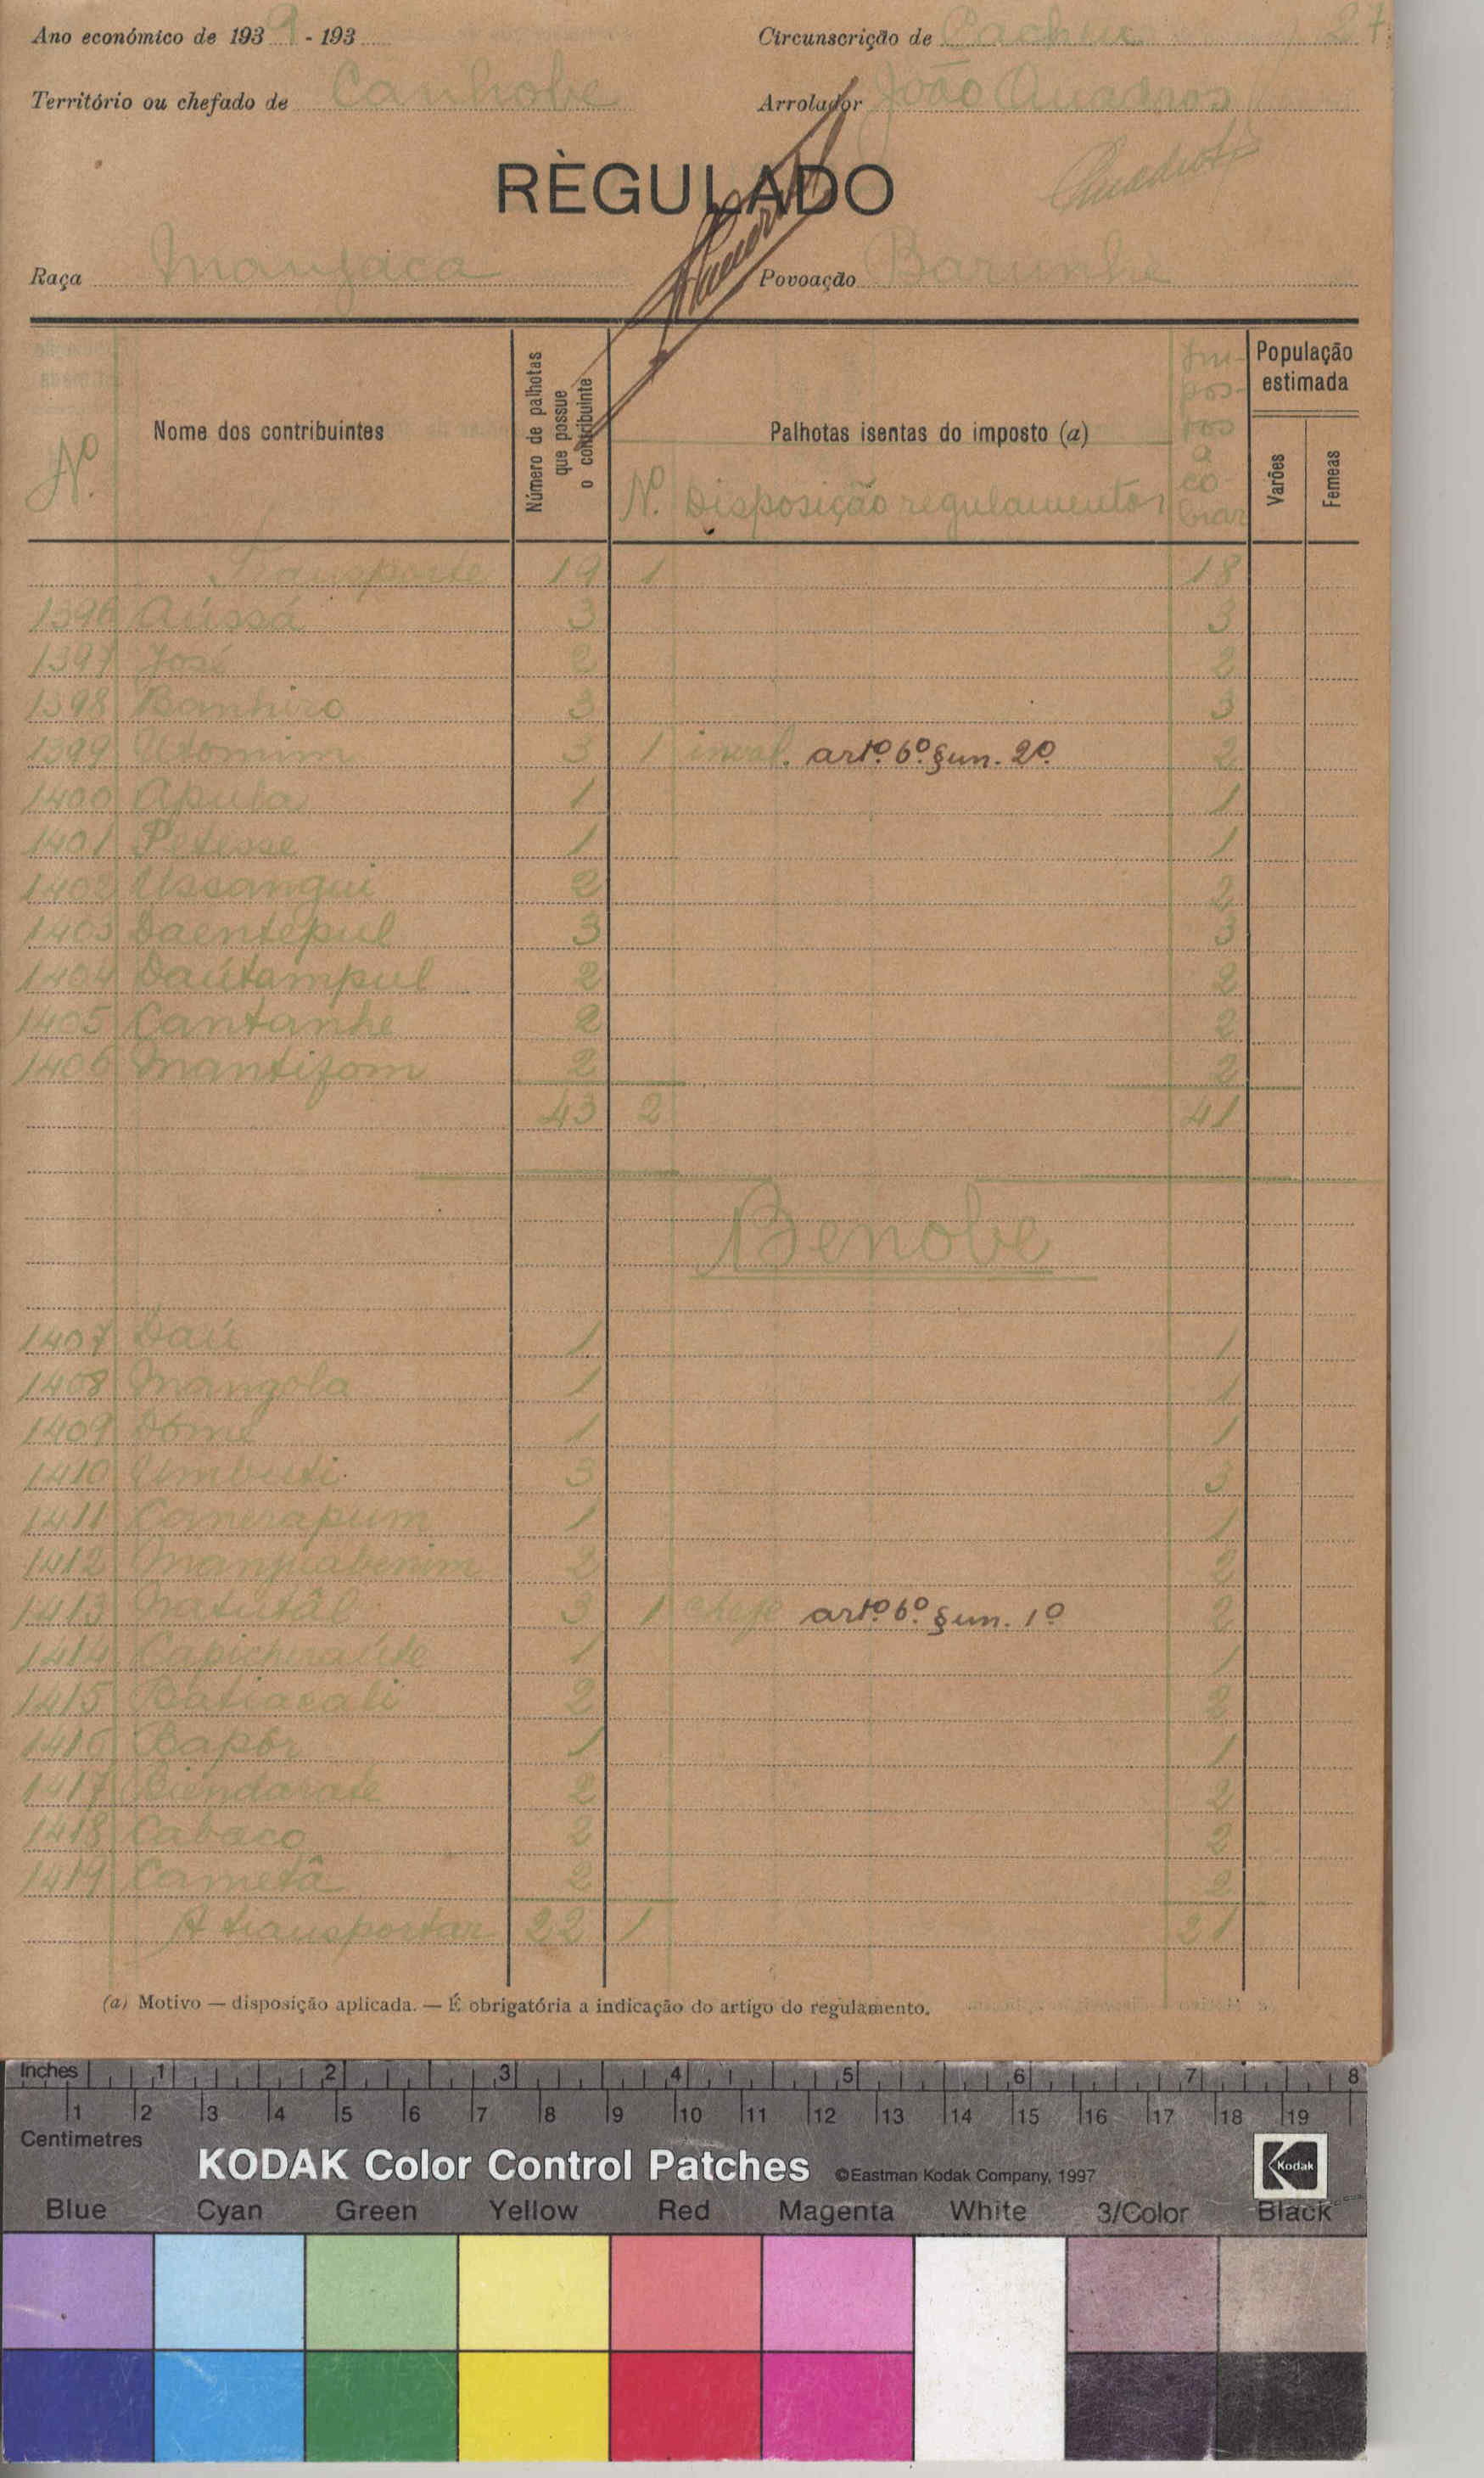 Ano económico de 1939 - 193
Circunscrição de Cacheu 27
Território ou chefado de Canhobe
Arrolador João
RÈGULADO
Raça Manjaca
Povoação Barunhe
Nº
Nome dos contribuintes
Número de palhotas que possue o contribuinte
Palhotas isentas do imposto (a)
Nº. Disposição regulamentar
Impostos a cobrar
População estimada
Varões
Femeas
Transporte 19 1 18
1396 Aússá 3 3
1397 José 2 2
1398 Banhiro 3 3
1399 Utomim 3 1 inval. artº 6º § un. 2º 2
1400 Apula 1 1
1401 Petesse 1 1
1402 Ussangui 2 2
1403 Daentepul 3 3
1404 Daútampul 2 2
1405 Cantanhe 2 2
1406 Mantifom 2 2
43 2 41
Benobe
1407 Daú 1 1
1408 Mangola 1 1
1409 Dôme 1 1
1410 Umbuti 3 3
1411 Comerapum 1 1
1412 2 2
1413 Natutâl 3 1 chefe artº 6º § un. 1º 2
1414 Capicheraúte 1 1
1415 Batiacali 2 2
1416 Bapôr 1 1
1417 2 2
1418 Cabaco 2 2
1419 Cametâ 2 2
A transportar 22 1 21
(a) Motivo — disposição aplicada. — É obrigatória a indicação do artigo do regulamento.
Inches 1 2 3 4 5 6 7 8
1 2 3 4 5 6 7 8 9 10 11 12 13 14 15 16 17 18 19
Centimetres
KODAK Color Control Patches ©Eastman Kodak Company, 1997 Kodak
Blue Cyan Green Yellow Red Magenta White 3/Color Black